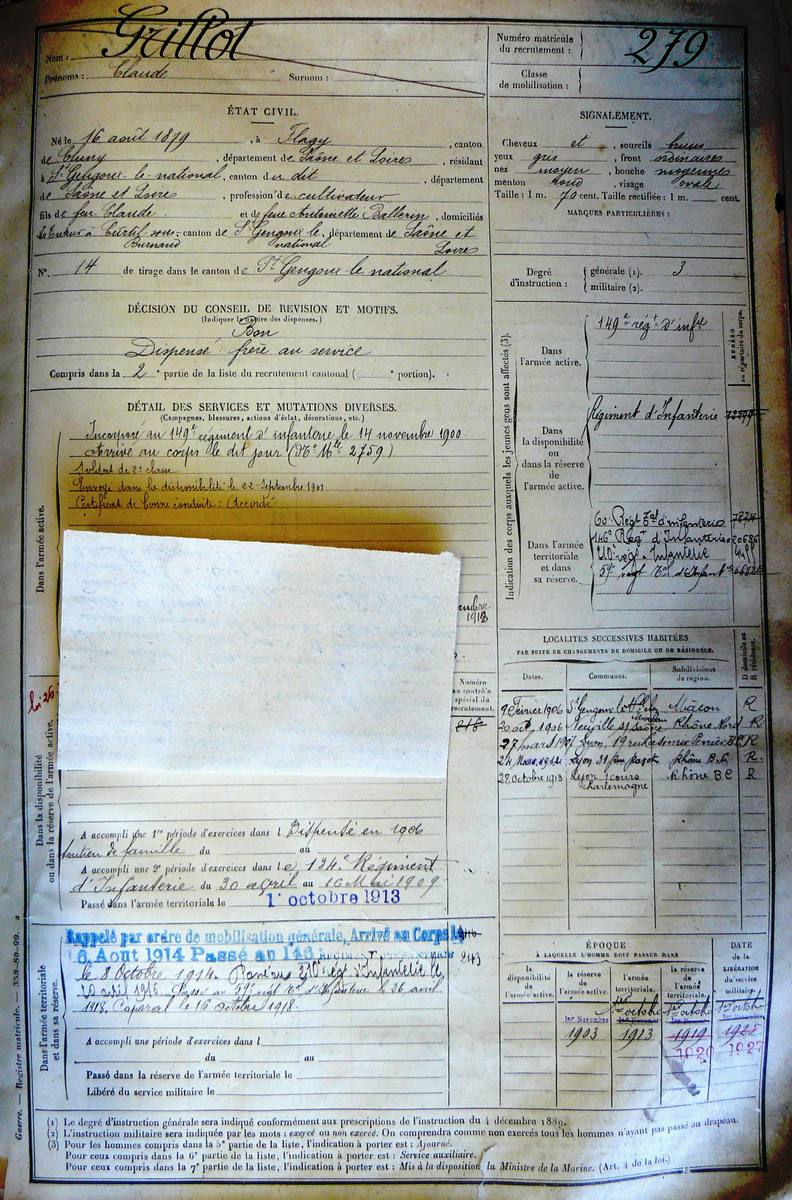 Nom : Grillot
Prénoms : Claude Surnom :
Numéro matricule du recrutement : 279
Classe de mobilisation :
ÉTAT CIVIL.
Né le 16 août 1879, à Flagy, canton
de Cluny, département de Saône et Loire, résidant
à St Gengoux-le-national, canton du dit, département
de Saône et Loire, profession de cultivateur
fils de feu Claude et de feue Antoinette Ballerin, domiciliés
à Curtil sous Burnand, canton de St Gengoux le national, département de Saône et Loire
N° 14 de tirage dans le canton de St Gengoux le national
SIGNALEMENT.
Cheveux et sourcils bruns
yeux gris, front ordinaires
nez moyen, bouche moyennes
menton rond, visage ovale
Taille : 1 m. 70 cent. Taille rectifiée : 1 m. cent.
MARQUES PARTICULIÈRES :
Degré d'instruction : générale (1). 3
militaire (2).
DÉCISION DU CONSEIL DE REVISION ET MOTIFS.
(Indiquer la nature des dispenses.)
Bon
Dispensé : frère au service
Compris dans la 2e partie de la liste du recrutement cantonal ( e portion).
DÉTAIL DES SERVICES ET MUTATIONS DIVERSES.
(Campagnes, blessures, actions d'éclat, décorations, etc.)
Dans l'armée active.
Incorporé au 149e régiment d'infanterie le 14 novembre 1900.
Arrivé au corps le dit jour (N° Mle 2759)
Soldat de 2e classe
Envoyé dans la disponibilité le 22 Septembre 1901
Certificat de bonne conduite : Accordé
1918
Numéro au contrôle spécial du recrutement.
Dans la disponibilité ou dans la réserve de l'armée active.
A accompli une 1re période d'exercices dans l Dispensé en 1906
soutien de famille du au
A accompli une 2e période d'exercices dans le 134e Régiment
d'Infanterie du 30 avril au 16 Mai 1909
Passé dans l'armée territoriale le 1er octobre 1913
Dans l'armée territoriale et dans sa réserve.
Rappelé par ordre de mobilisation générale, Arrivé au Corps le
6 Aout 1914 Passé au 146
le 8 Octobre 1914. Passé au 210e régt d'Infanterie le
20 avril 1916. Passé au 59e régt d'Infanterie le 26 avril
1918. Caporal le 16 octobre 1918.
A accompli une période d'exercices dans l
du au
Passé dans la réserve de l'armée territoriale le
Libéré du service militaire le
Indication des corps auxquels les jeunes gens sont affectés (3).
NUMÉRO au répertoire du corps.
Dans l'armée active.
149e régt d'infie
Dans la disponibilité ou dans la réserve de l'armée active.
Régiment d'Infanterie
Dans l'armée territoriale et dans sa réserve.
60e Régt Tal d'infanterie
146e Régt d'Infanterie
210e régt Infanterie
LOCALITÉS SUCCESSIVES HABITÉES
PAR SUITE DE CHANGEMENTS DE DOMICILE OU DE RÉSIDENCE.
Dates. Communes. Subdivisions de région. D domicile ou R résidence.
9 Février 1906 St Gengoux Mâcon R
Neuville s/ Saône Rhône Nord R
27 mars 1907 Lyon, 19 rue R
Lyon Rhône R.
28 octobre 1913 Lyon 1 cours Charlemagne Rhône BC R
ÉPOQUE
À LAQUELLE L'HOMME DOIT PASSER DANS
DATE DE LA LIBÉRATION DU SERVICE militaire.
la disponibilité de l'armée active. la réserve de l'armée active. l'armée territoriale. la réserve de l'armée territoriale.
1er Novembre 1903 1er octobre 1913 1er octobre 1919 1er octobre
Guerre. — Registre matricule. — 358-80-99.
(1) Le degré d'instruction générale sera indiqué conformément aux prescriptions de l'instruction du 4 décembre 1889.
(2) L'instruction militaire sera indiquée par les mots : exercé ou non exercé. On comprendra comme non exercés tous les hommes n'ayant pas passé au drapeau.
(3) Pour les hommes compris dans la 5e partie de la liste, l'indication à porter est : Ajourné.
Pour ceux compris dans la 6e partie de la liste, l'indication à porter est : Service auxiliaire.
Pour ceux compris dans la 7e partie de la liste, l'indication à porter est : Mis à la disposition du Ministre de la Marine. (Art. 4 de la loi.)